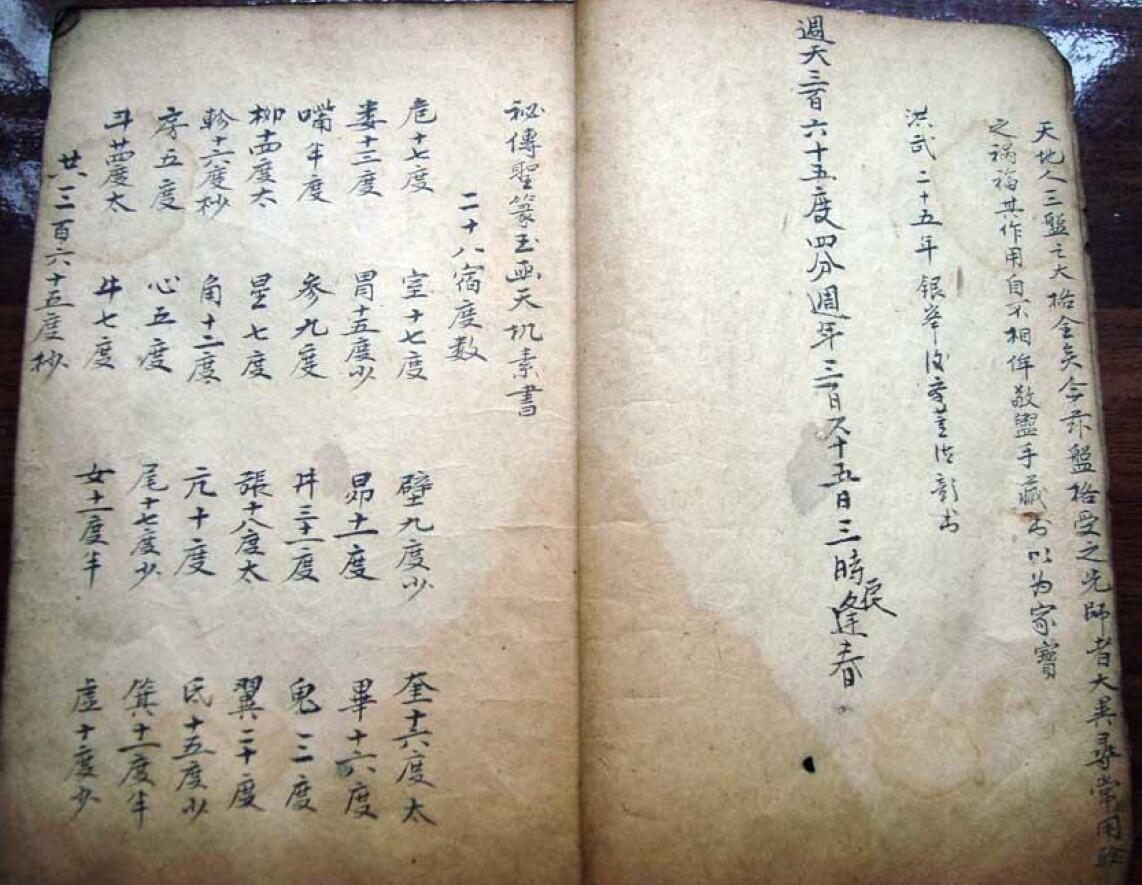 天地人三盤之大格全矣今茲盤格受之先師者大異尋常用
之禍福其作用自不相侔敬盥手藏書以为家寶
洪武二十五年銀峯
週天三百六十五度四分週年三百六十五日三時辰逢春
秘傳聖篆玉函天机素書
二十八宿度数
危十七度 室十七度 壁九度少 奎十六度太
娄十二度 胃十五度少 昴十一度 畢十六度
嘴半度 參九度 井三十一度 鬼二度
柳十四度太 星七度 張十八度太 翼二十度
軫十六度杪 角十二度 亢十度 氐十五度少
房五度 心五度 尾十七度少 箕十一度半
斗廿四度太 牛七度 女十一度半 虚十度少
共三百六十五度杪